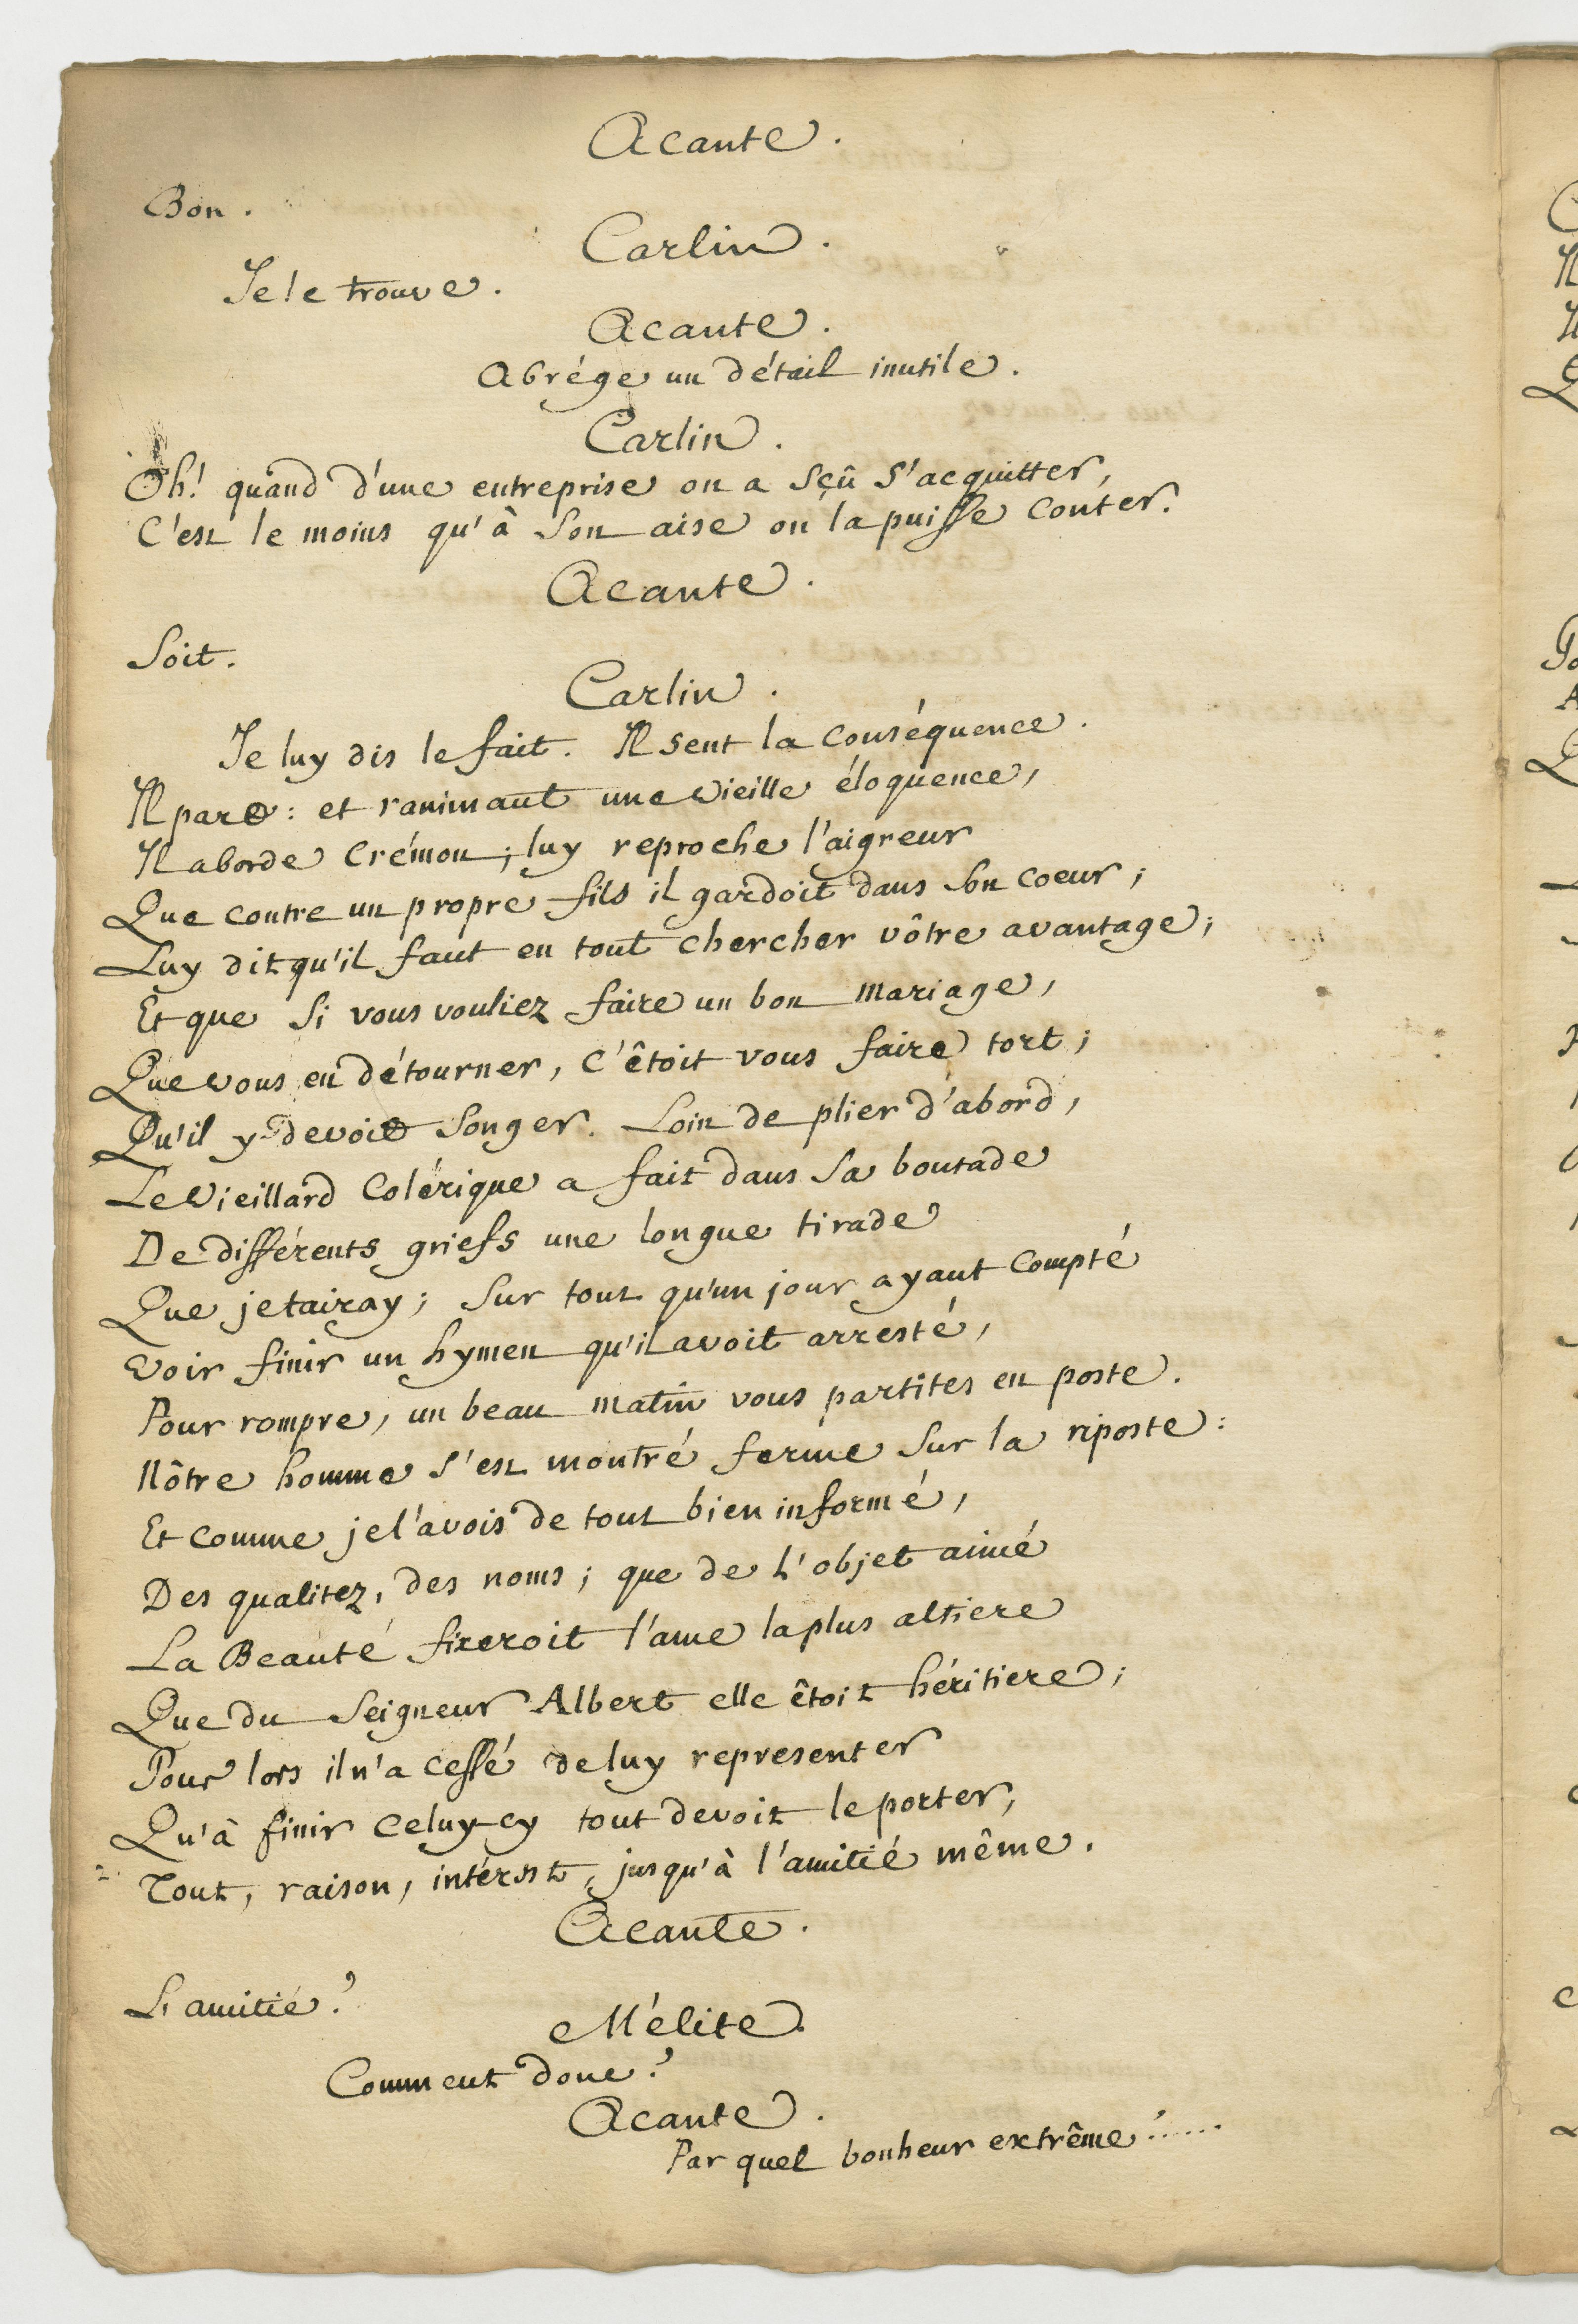 Acante.
Bon.
Carlin.
Je le trouve.
Acante.
Abrége un détail inutile.
Carlin.
Oh! quand d'une entreprise on a sçû s'acquitter,
C'est le moins qu'à son aise on la puisse conter.
Acante.
Soit.
Carlin.
Je luy dis le fait. Il sent la conséquence.
Il part: et ranimant une vieille éloquence,
Il aborde Crémon; luy reproche l'aigreur
Que contre un propre fils il gardoit dans son coeur;
Luy dit qu'il faut en tout chercher vôtre avantage;
Et que si vous vouliez faire un bon mariage,
Que vous en détourner, c'êtoit vous faire tort;
Qu'il y devoit songer. Loin de plier d'abord,
Le vieillard colérique a fait dans sa boutade
De différents griefs une longue tirade
Que je tairay; sur tout qu'un jour ayant compté
Voir finir un hymen qu'il avoit arresté,
Pour rompre, un beau matin vous partites en poste.
Nôtre homme s'est montré ferme sur la riposte:
Et comme je l'avois de tout bien informé,
Des qualitez, des noms; que de l'objet aimé
La Beauté fixeroit l'ame la plus altiere
Que du Seigneur Albert elle êtoit héritiere;
Pour lors il n'a cessé de luy representer
Qu'à finir celuy-cy tout devoit le porter,
Tout, raison, intérest, jusqu'à l'amitié même.
Acante.
L'amitié?
Mélite.
Comment donc?
Acante.
Par quel bonheur extrême?......